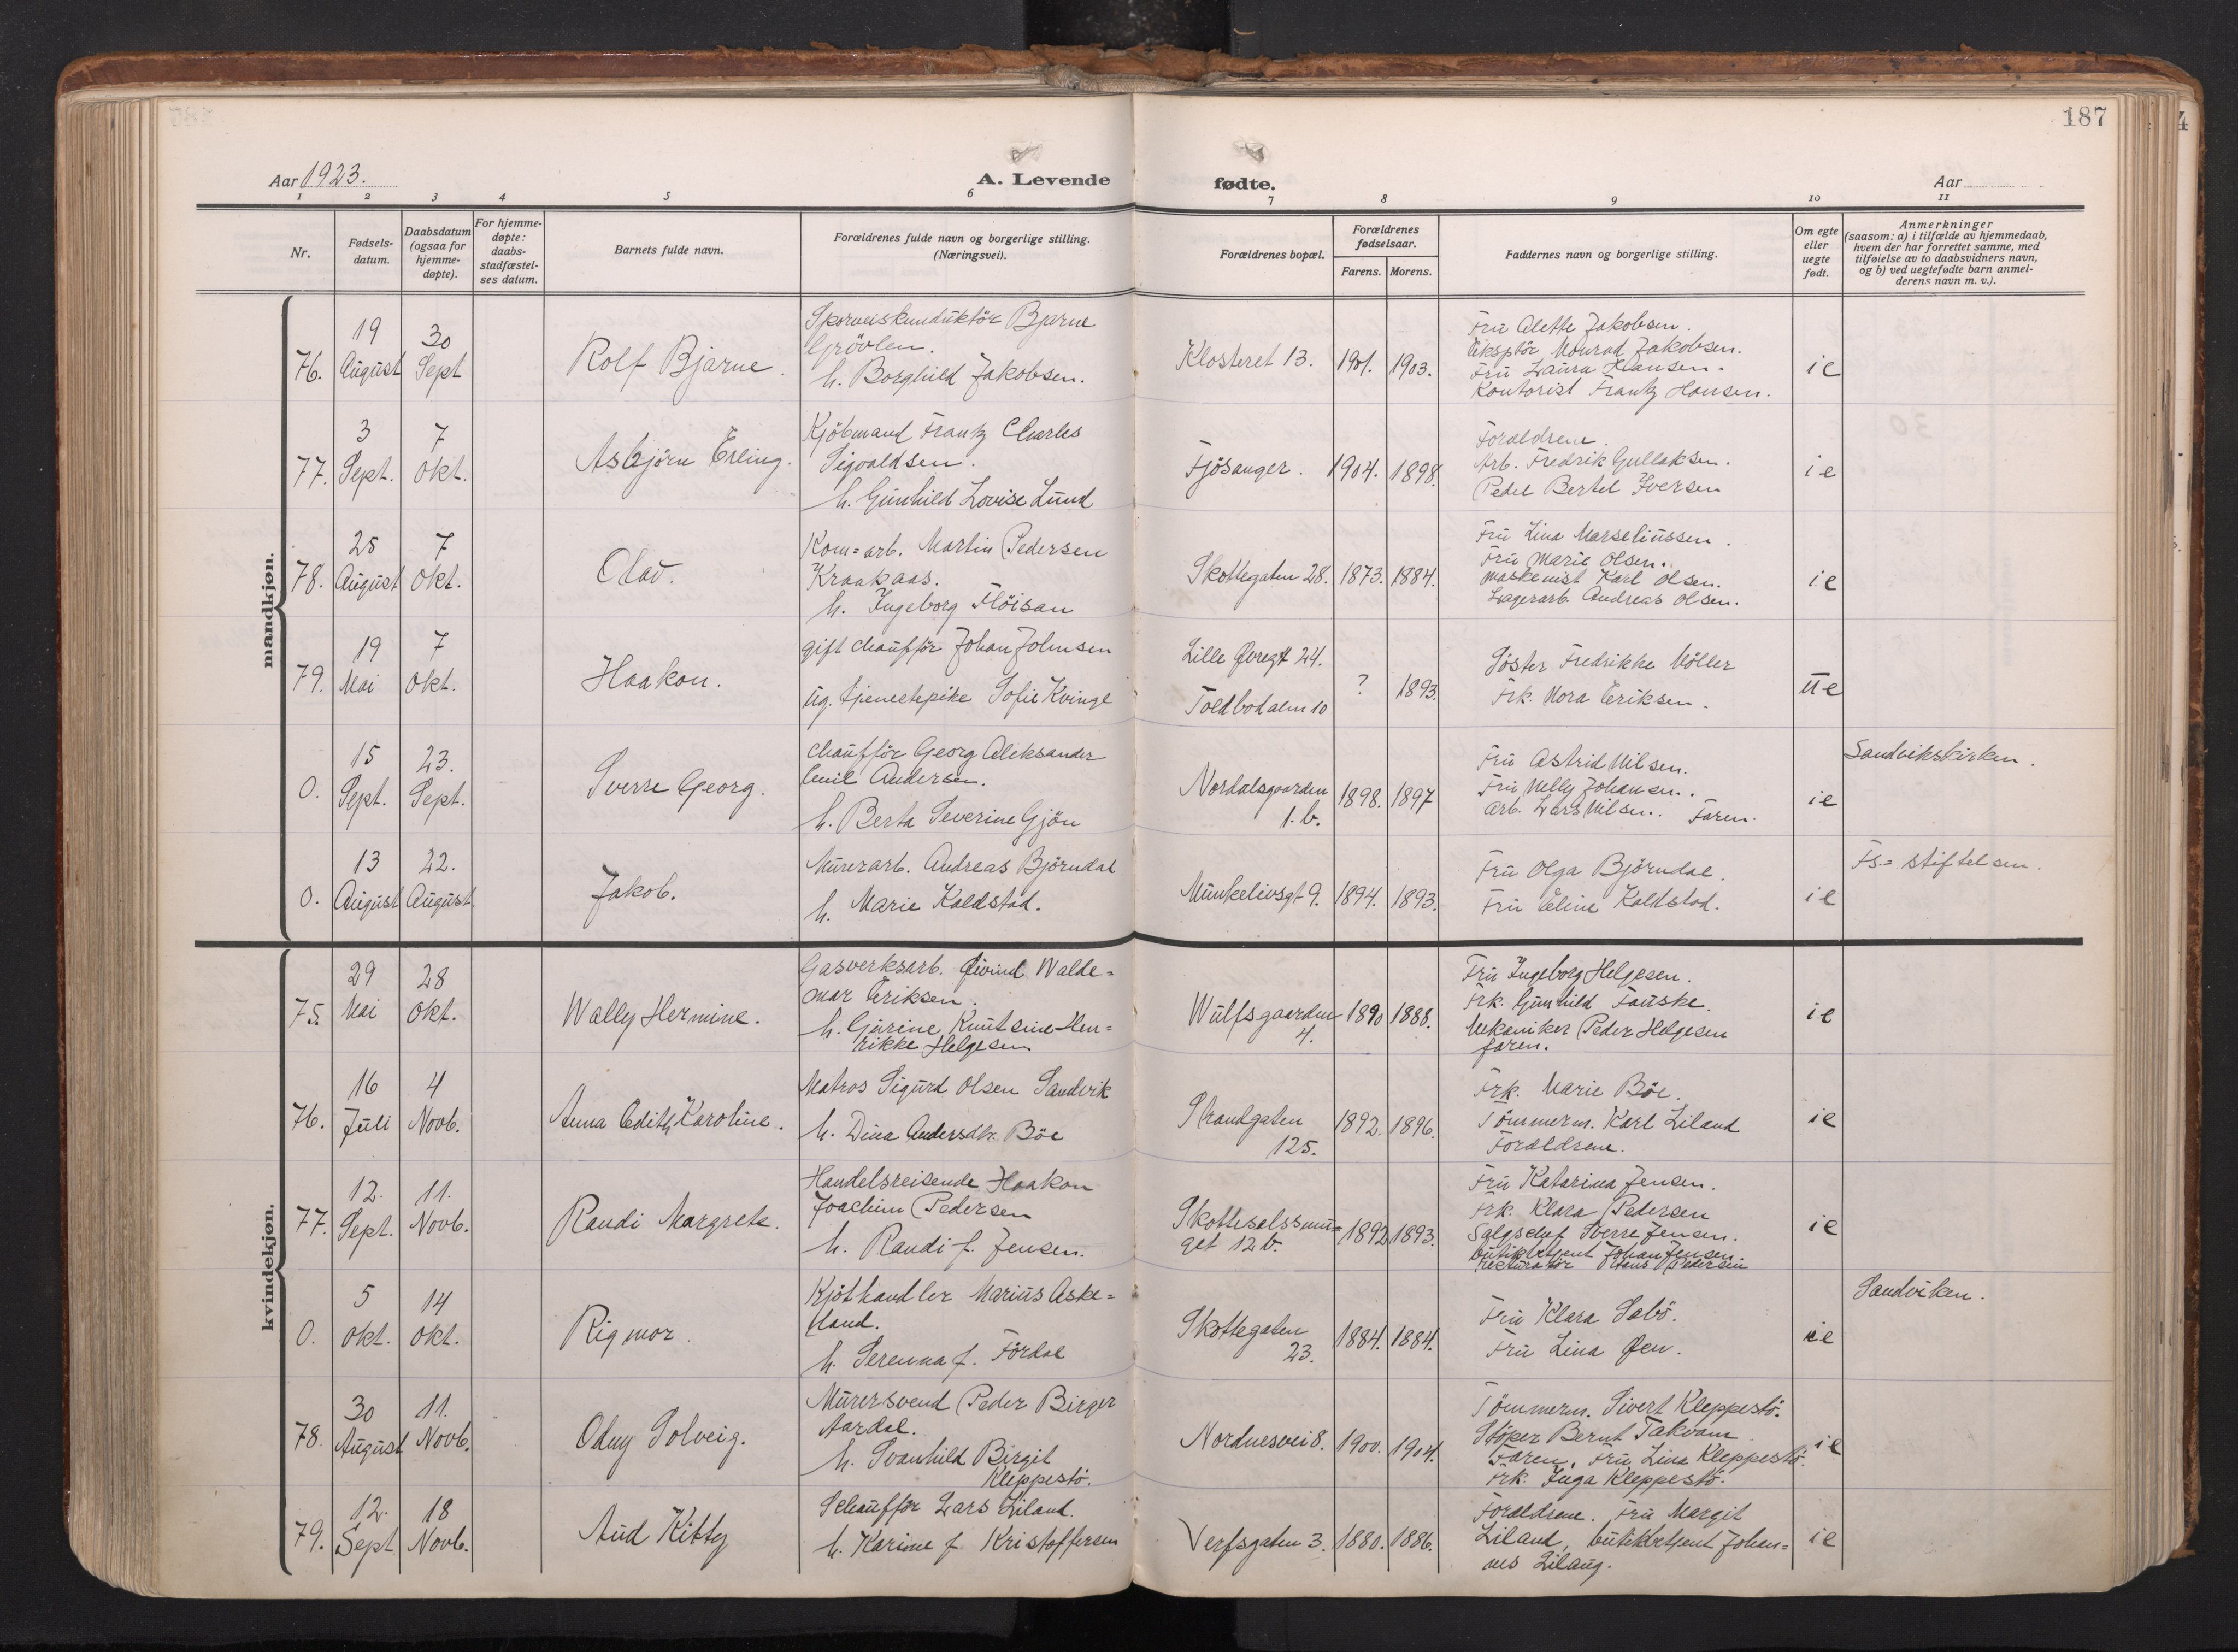 187
Aar 1923.
A. Levende fødte.
Aar
1 2 3 4 5 6 7 8 9 10 11
Nr.
Fødsels-
datum.
Daabsdatum
(ogsaa for
hjemme-
døpte).
For hjemme-
døpte:
daabs-
stadfæstel-
ses datum.
Barnets fulde navn.
Forældrenes fulde navn og borgerlige stilling.
(Næringsvei).
Forældrenes bopæl.
Forældrenes
fødselsaar.
Farens. Morens.
Faddernes navn og borgerlige stilling.
Om egte
eller
uegte
født.
Anmerkninger
(saasom: a) i tilfælde av hjemmedaab,
hvem der har forrettet samme, med
tilføielse av to daabsvidners navn,
og b) ved uegtefødte barn anmel-
derens navn m. v.).
mandkjøn.
76.
19
August
30
Sept
Rolf Bjarne.
Sporveiskunduktör Bjarne
Grövlen.
h. Borghild Jakobsen.
Klosteret 13.
1901.
1903.
Fru Alette Jakobsen.
Eksptör Monrad Jakobsen.
Fru Laura Hansen.
Kontorist Frantz Hansen.
ie
77.
3
Sept.
7
Okt.
Asbjörn Erling.
Kjöbmand Frantz Charles
Sigvaldsen.
h. Gunhild Lovise Lund
Fjösanger.
1904.
1898.
Foraldrene.
Arb. Fredrik Gullaksen.
Pedel Bertel Iversen
ie
78.
25
August
7
Okt.
Olav.
Kom=arb. Martin Pedersen
Kraakaas.
h. Ingeborg Flöisan
Skottegaten 28.
1873.
1884.
Fru Lina Marseliussen.
Fru Marie Olsen.
Maskenist Karl Olsen.
Lagerarb. Andreas Olsen.
ie
79.
19
Mai
7
Okt.
Haakon.
gift chaufför Johan Johnsen
ug. tjenestepike Sofie Kvinge
Lille Øvregt 24.
Toldbodalm 10
?
1893.
Söster Fredrikke Möller
Frk. Nora Eriksen.
ue
0.
15
Sept.
23.
Sept.
Sverre Georg.
Chaufför Georg Aleksander
Emil Andersen.
h. Berta Severine Gjön
Nordalsgaarden
1.b.
1898.
1897
Fru Astrid Nilsen.
Fru Nelly Johansen.
Arb. Lars Nilsen. Faren.
ie
Sandvikskirken.
0.
13
August
22.
August.
Jakob.
Murerarb. Andreas Björndal
h. Marie Koldstad.
Munkelivsgt 9.
1894.
1893.
Fru Olga Björndal.
Fru Eline Koldstad.
ie
Fs.= stiftelsen.
kvindekjøn.
75.
29
Mai
28
Okt.
Wally Hermine.
Gasverksarb. Øivind Walde=
mar Eriksen.
h. Gurine Knutsine Hen-
rikke Helgesen
Wulfsgaarden
4.
1890
1888.
Fru Ingeborg Helgesen.
Frk. Gunhild Fauske.
Mekaniker Peder Helgesen
faren.
ie
76.
16
Juli
4
Novb.
Anna Edith Karoline.
Matros Sigurd Olsen Sandvik
h. Dina Andersdtr. Böe
Strandgaten
125.
1892.
1896.
Frk. Marie Böe.
Tömmerm. Karl Liland
Foraldrene.
ie
77.
12.
Sept.
11.
Novb.
Randi Margrete.
Handelsreisende Haakon
Joachim Pedersen
h. Randi f. Jensen.
Skottesalssmu=
get 12 b.
1892
1893.
Fru Katarina Jensen.
Frk. Klara Pedersen
Salgschef Sverre Jensen.
butikbetjent Johan Jensen.
Hans Pedersen
ie
0.
5
Okt.
14
Okt.
Rigmor.
Kjöthandler Marius Aske=
land.
h. Serenna f. Fördal
Skottegaten
23.
1884.
1884.
Fru Klara Sabö.
Fru Lina Øen.
ie
Sandviken.
78.
30
August
11.
Novb.
Odny Solveig.
Murersvend Peder Birger
Aardal.
h. Svanhild Birgit
Kleppestö.
Nordnesvei 8.
1900.
1904.
Tömmerm. Sivert Kleppestö.
Stöper Bernt Takvam
Faren. Fru Lina Kleppestö.
Frk. Inga Kleppestö.
ie
79.
12.
Sept
18
Novb.
Aud Kitty
Schaufför Lars Liland.
h. Karine f. Kristoffersen
Verfsgaten 3.
1880.
1886.
Foraldrene. Fru Margit
Liland, butikbetjent Johan=
nes Lilaug.
ie